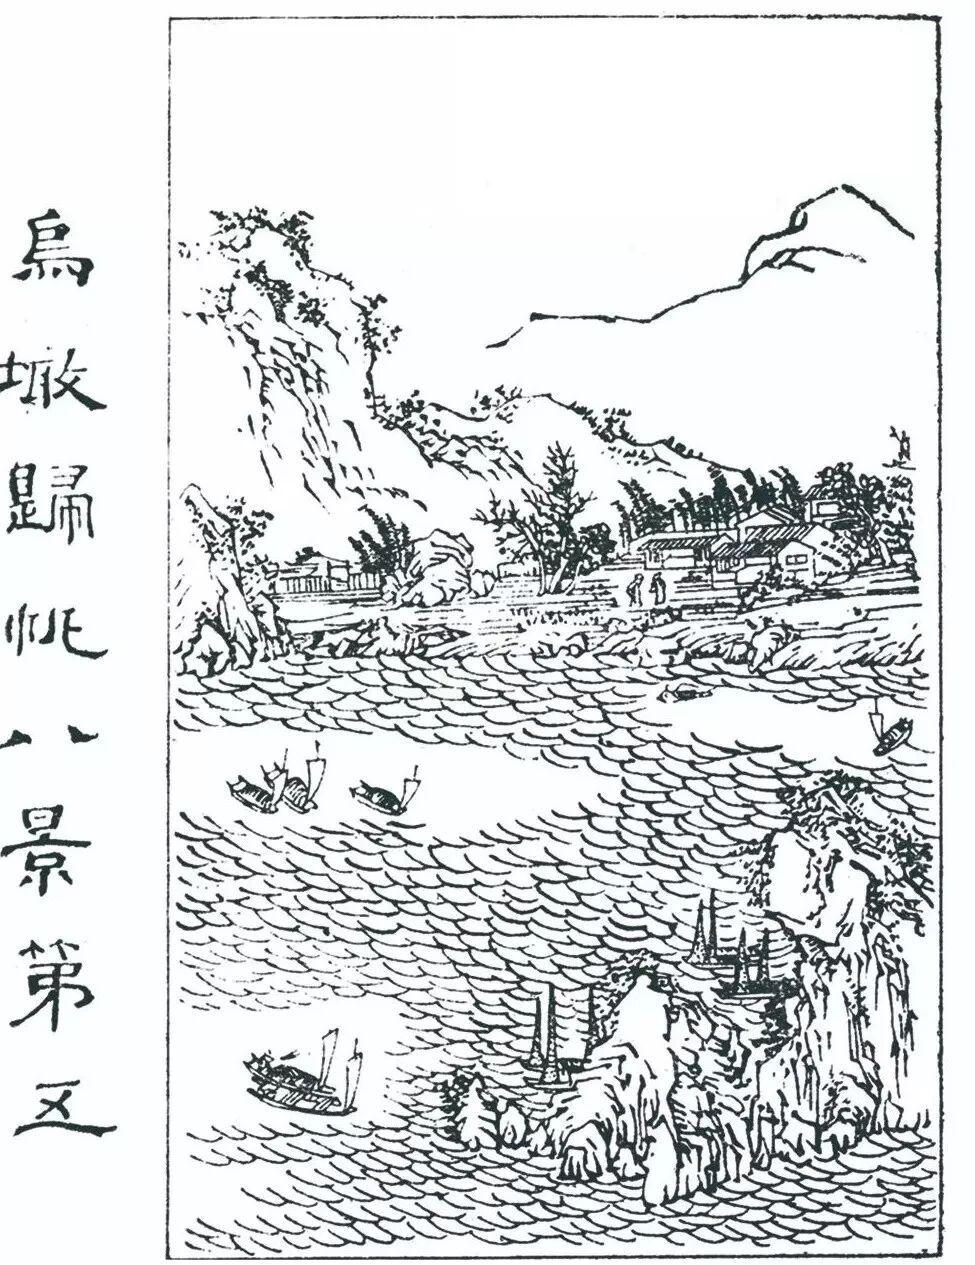 烏墩歸帆八景第五